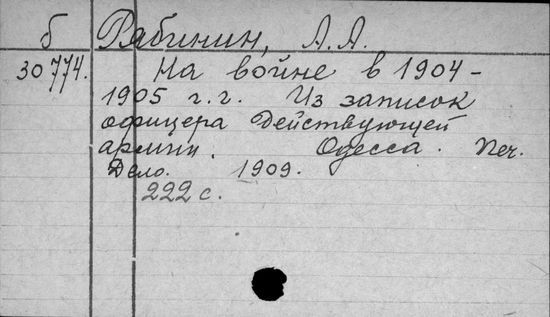 б Рябинин, А.А.
30774. На войне в 1904-
1905 г.г. Из записок
офицера Действующей
армии. Одесса. Печ.
Дело. 1909.
222 с.